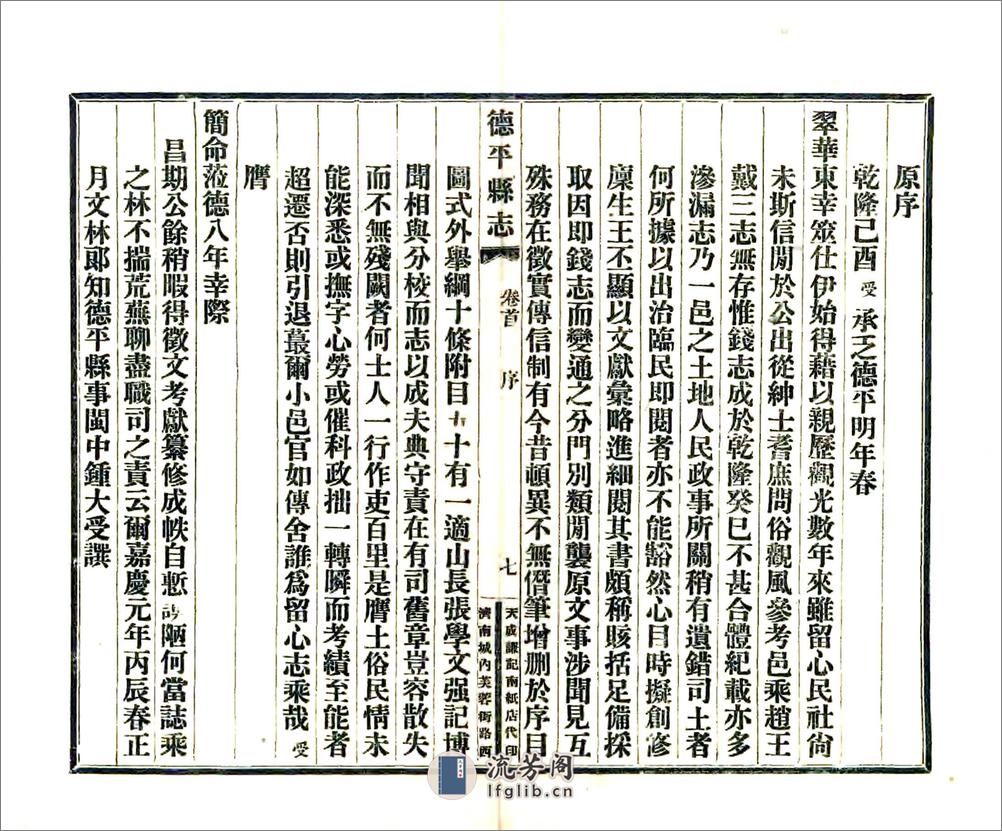 原序
乾隆己酉受承乏德平明年春
翠華東幸筮仕伊始得藉以親歷觀光數年來雖留心民社尙
未斯信閒於公出從紳士耆庶問俗觀風參考邑乘趙王
戴三志無存惟錢志成於乾隆癸巳不甚合體紀載亦多
滲漏志乃一邑之土地人民政事所關稍有遺錯司土者
何所據以出治臨民卽閱者亦不能豁然心目時擬創修
廩生王丕顯以文獻彙略進細閱其書頗稱賅括足備採
取因卽錢志而變通之分門別類閒襲原文事涉聞見互
殊務在徵實傳信制有今昔頓異不無僭筆增删於序目
德平縣志 卷首 序 七
天成謙記南紙店代印
濟南城內芙蓉街路西
圖式外舉綱十條附目十有一適山長張學文强記博
聞相與分校而志以成夫典守責在有司舊章豈容散失
而不無殘闕者何士人一行作吏百里是膺土俗民情未
能深悉或撫字心勞或催科政拙一轉瞬而考績至能者
超遷否則引退蕞爾小邑官如傳舍誰爲留心志乘哉受
膺
簡命蒞德八年幸際
昌期公餘稍暇得徵文考獻纂修成帙自慙謭陋何當誌乘
之林不揣荒蕪聊盡職司之責云爾嘉慶元年丙辰春正
月文林郞知德平縣事閩中鍾大受譔
流芳阁
lfglib.cn